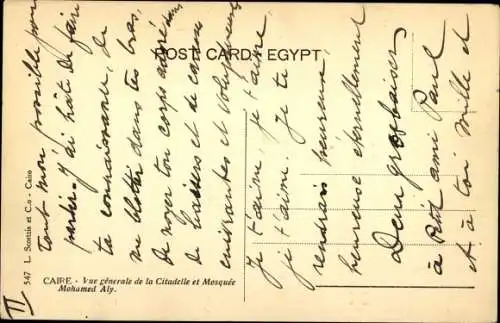 II
POST CARD EGYPT
547 L. Scortzis et C.o - Caire
CAIRE - Vue générale de la Citadelle et Mosquée
Mohamed Aly.
tout mon possible pour
partir. J'ai hâte de faire
ta connaissance, de
me blottir dans tes bras,
de noyer ton corps adoré dans
de baisers et de caresses
enivrantes et voluptueuses
Je t'aime, je t'aime,
je t'aime. Je te
rendrais heureuse,
heureuse éternellement
Demi gros baisers
à Petit ami Paul
et à toi mille et